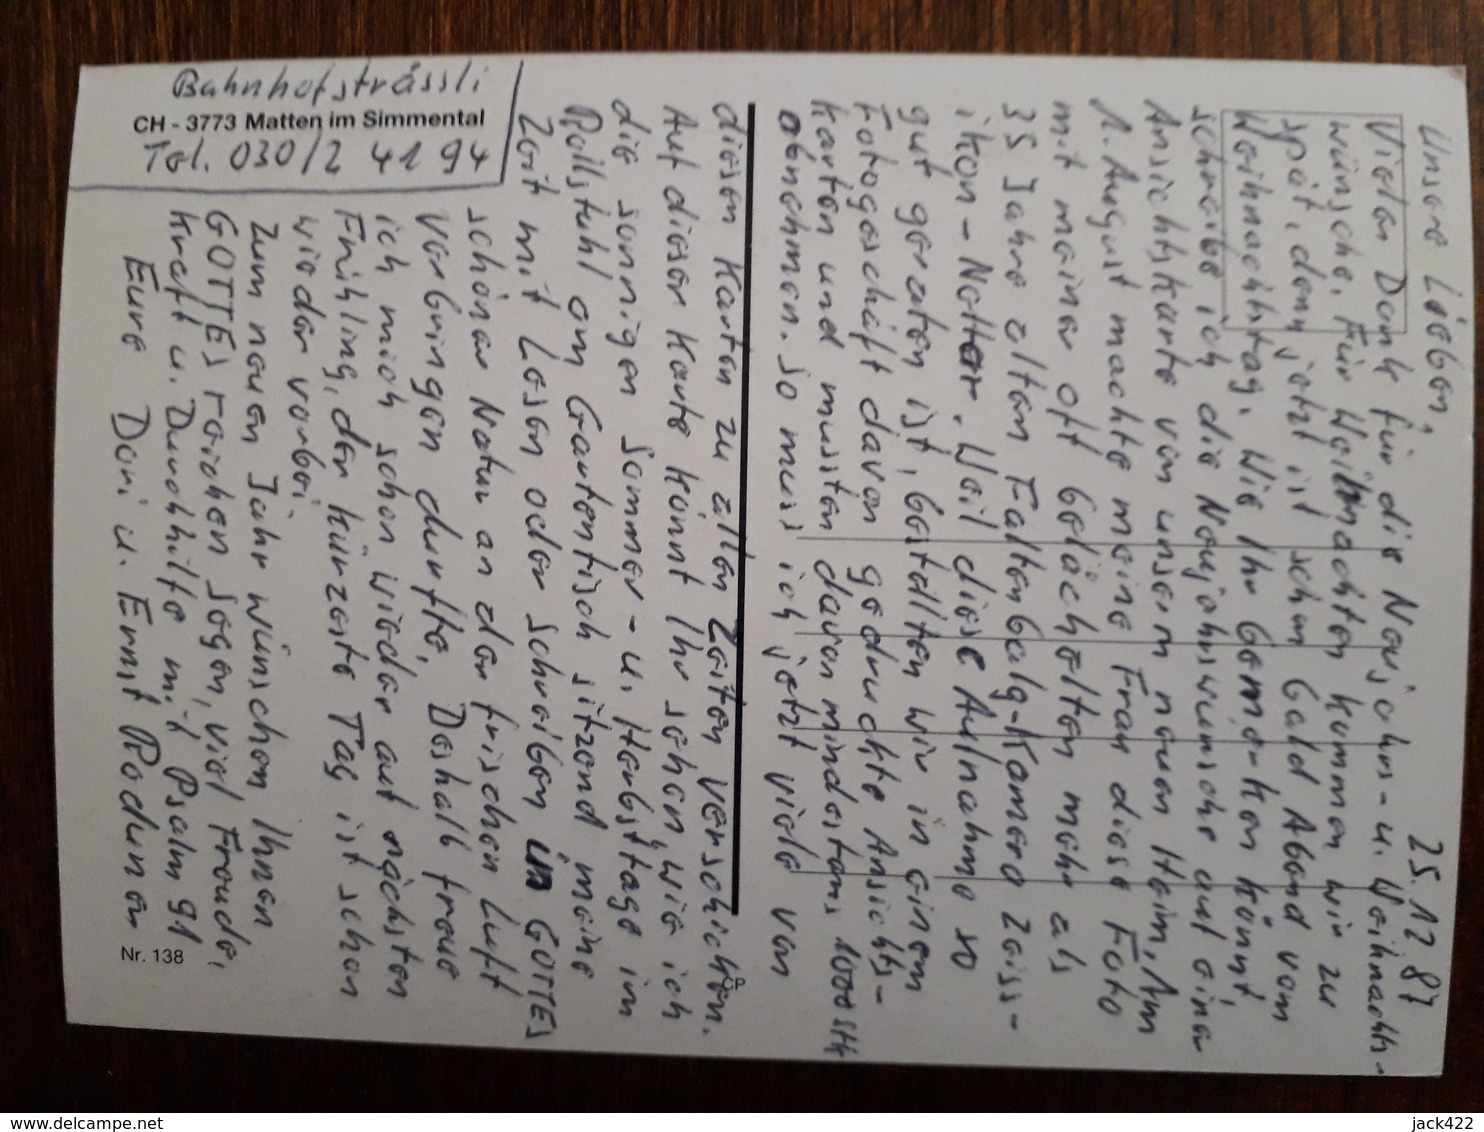 Bahnhofsträssli
CH - 3773 Matten im Simmental
Tel. 030/2 41 94
25.12 87
Unsere Lieben,
Vielen Dank für die Neujahrs- u. Weihnachts-
wünsche. Für Weihnachten kommen wir zu
spät, denn jetzt ist schon bald Abend vom
Weihnachtstag. Wie Ihr bemerken könnt
schreibe ich die Neujahrswünsche auf eine
Ansichtskarte von unserm neuen Heim. Am
1. August machte meine Frau diese Foto
mit meiner oft belächelten mehr als
35 Jahre alten Faltenbalg-Kamera Zeiss-
ikon-Nettar. Weil diese Aufnahme so
gut geraten ist, bestellten wir in einem
Fotogeschäft davon gedruckte Ansichts-
karten und mussten davon mindestens 1000 Stk
abnehmen. So muss ich jetzt viele von
diesen Karten zu allen Zeiten verschicken.
Auf dieser Karte könnt Ihr sehen, wie ich
die sonnigen Sommer- u. Herbsttage im
Rollstuhl am Gartentisch sitzend meine
Zeit mit Lesen oder schreiben in GOTTES
schöner Natur an der frischen Luft
verbringen durfte. Deshalb freue
ich mich schon wieder auf nächsten
Frühling, der kürzeste Tag ist schon
wieder vorbei.
Zum neuen Jahr wünschen Ihnen
GOTTES reichen Segen, viel Freude,
Kraft u. Durchhilfe mit Psalm 91
Eure Dori u. Ernst
Nr. 138
www.delcampe.net
jack422